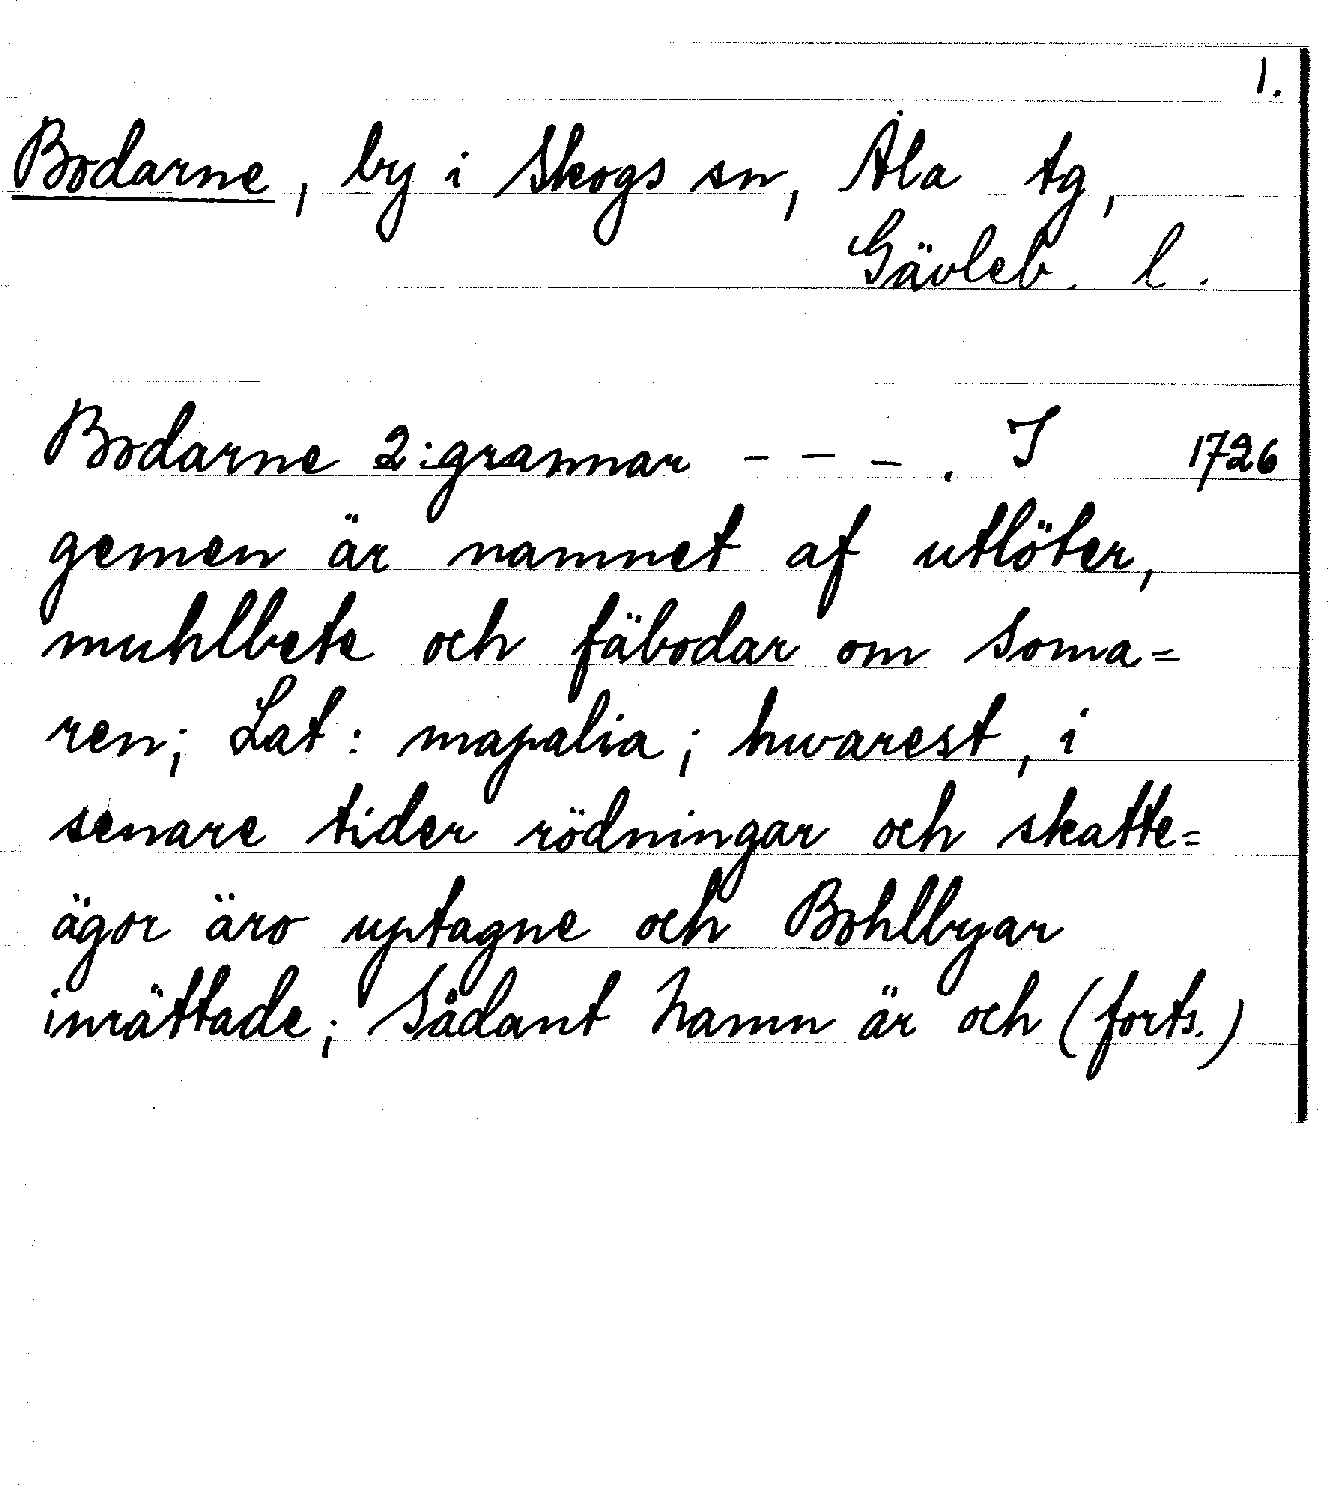 1.
Bodarne, by i Skogs sn, Ala tg,
Gävleb. l.
Bodarne 2:grannar - - - . I 1726
gemen är namnet af utlöter,
muhlbete och fäbodar om Soma=
ren; Lat: mapalia; hwarest, i
senare tider rödningar och skatte=
ägor äro uptagne och Bohlbyar
inrättade; Sådant Namn är och (forts.)